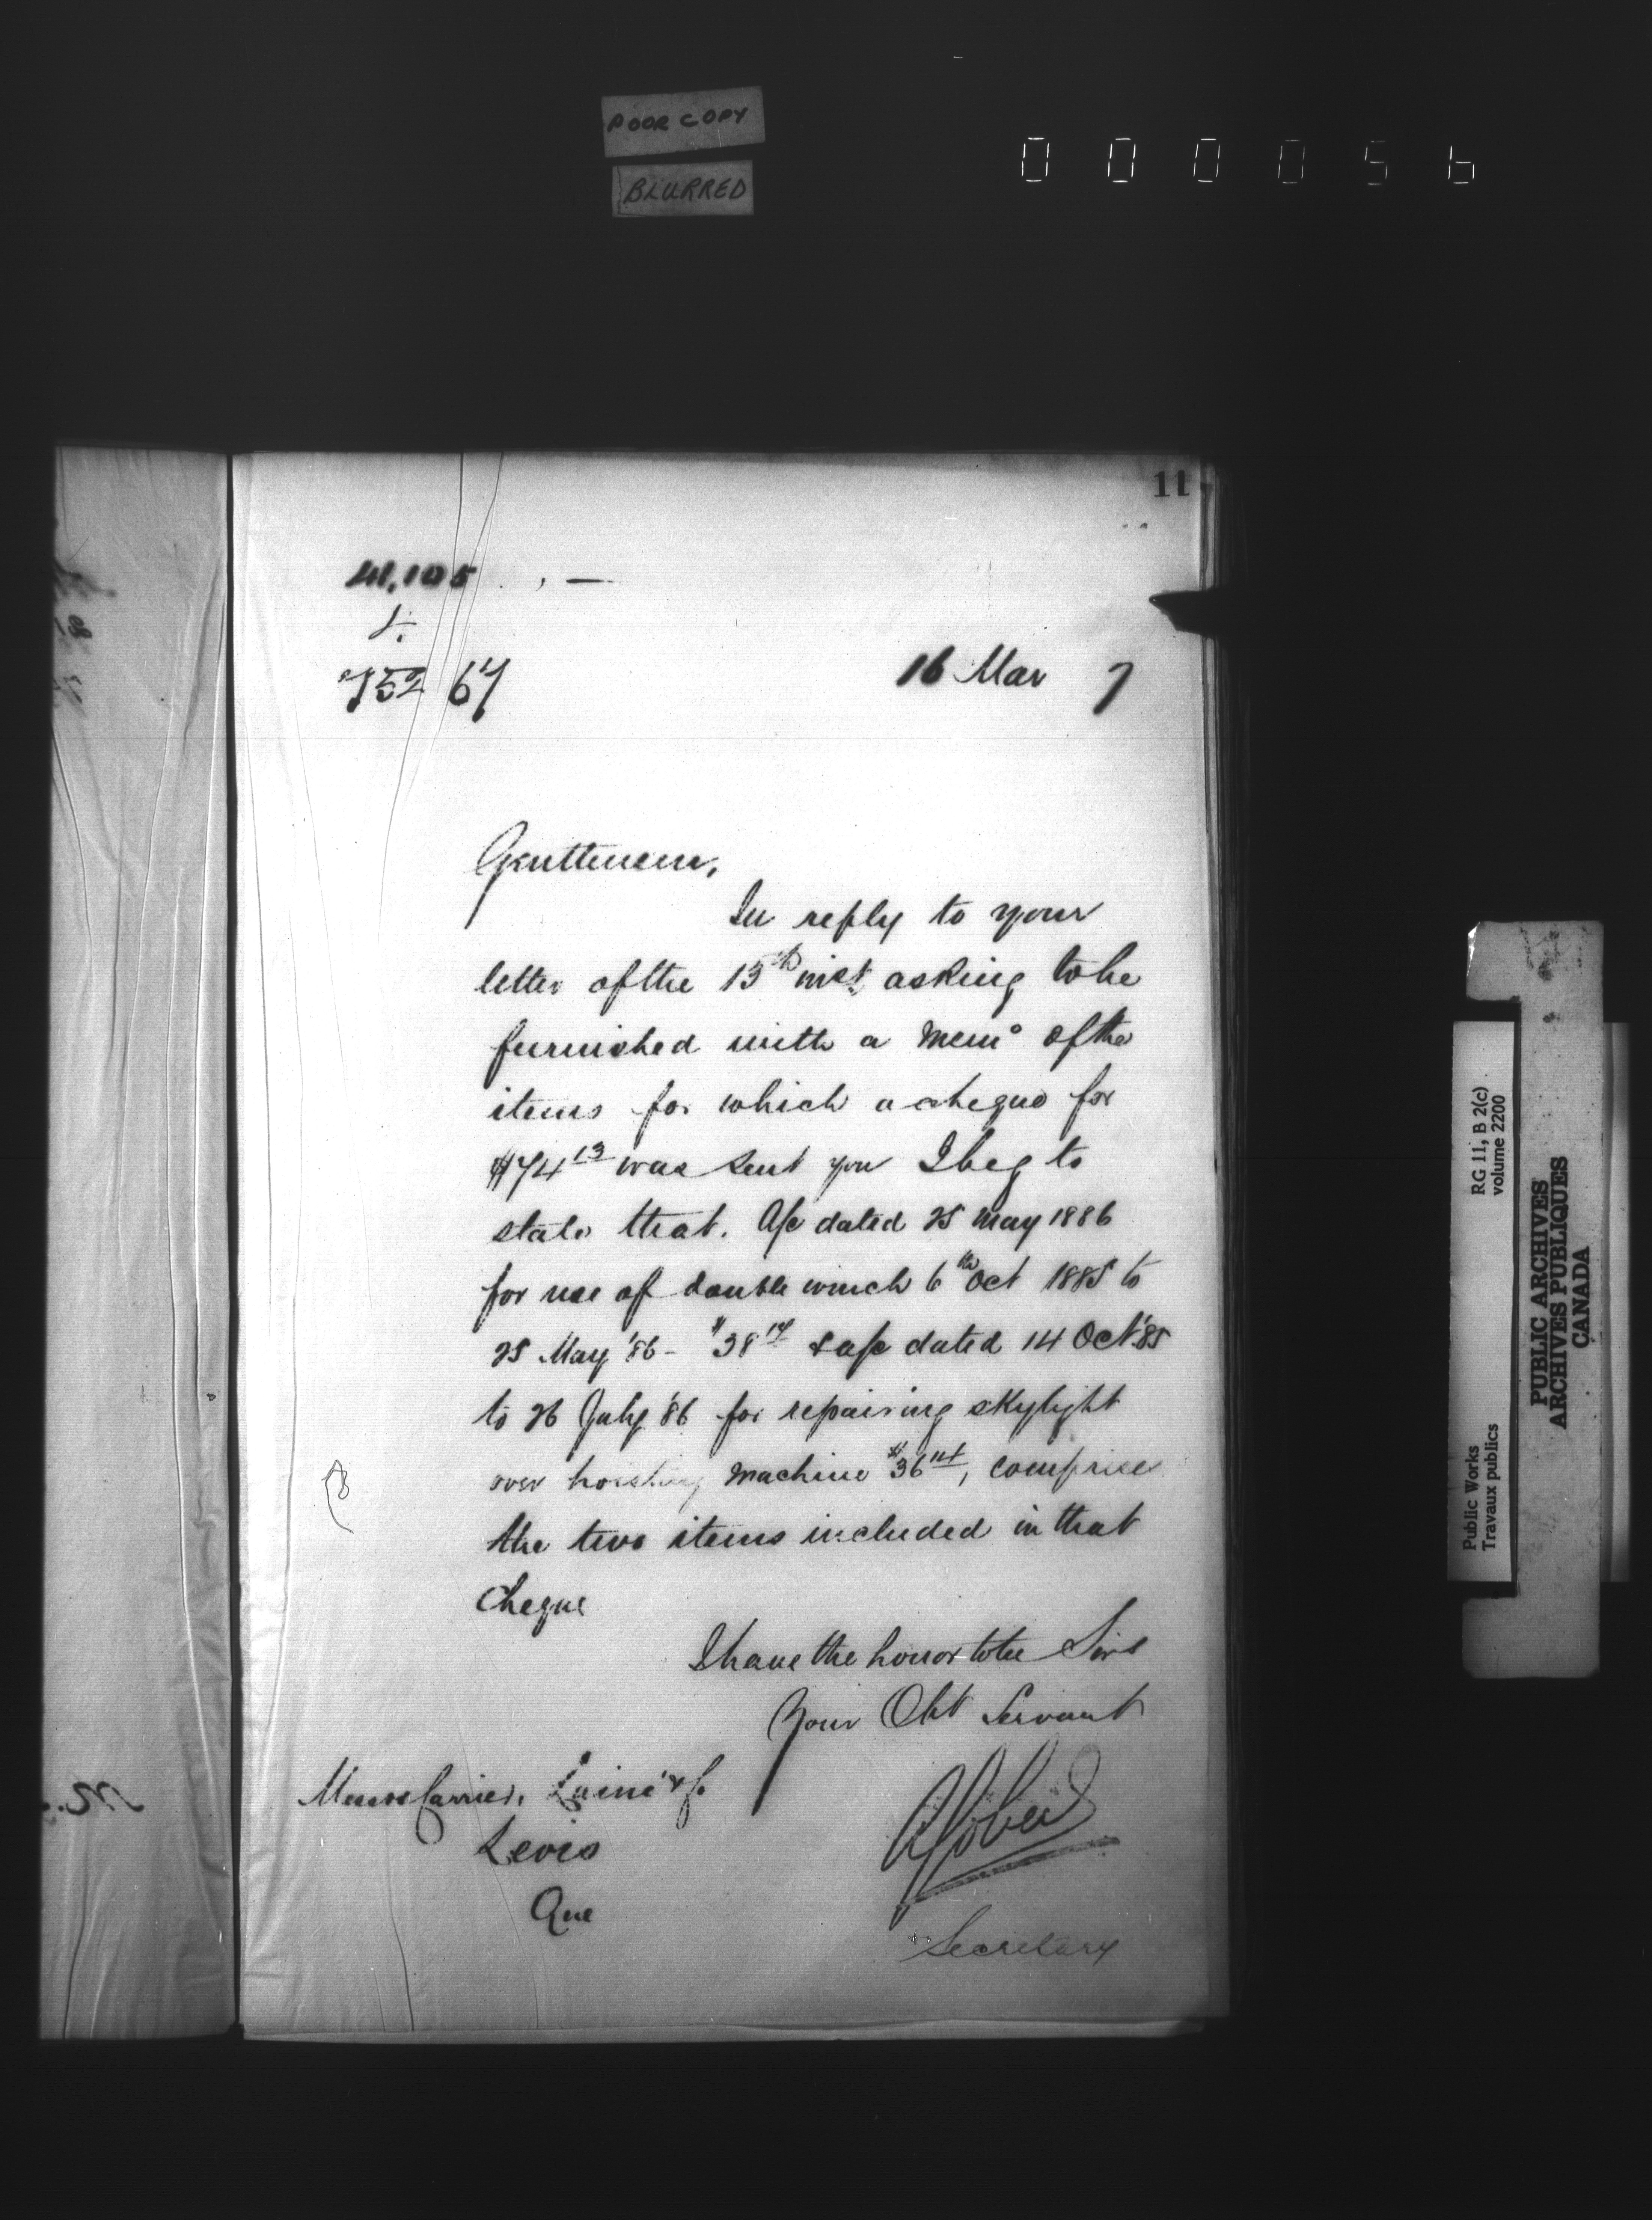 POOR COPY
BLURRED
000056
11
41,105
752 67
16 Mar 7
Gentlemen,
In reply to your
letter of the 15th inst asking to be
furnished with a Memo of the
items for which a cheque for
$74 13 was sent you I beg to
state that. A/c dated 25 May 1886
for use of double winch 6th Oct 1885 to
25 May '86 - $38 & a/c dated 14 Oct '85
to 26 July '86 for repairing skylight
over hoisting machine $36, comprise
the two items included in that
Cheque
I have the honor to be Sirs
Your Obt Servant
Messrs Carrier, Lainé & Co
Levis
Que
AGobeil
Secretary
RG 11, B 2(c)
volume 2200
Public Works
Travaux publics
PUBLIC ARCHIVES
ARCHIVES PUBLIQUES
CANADA